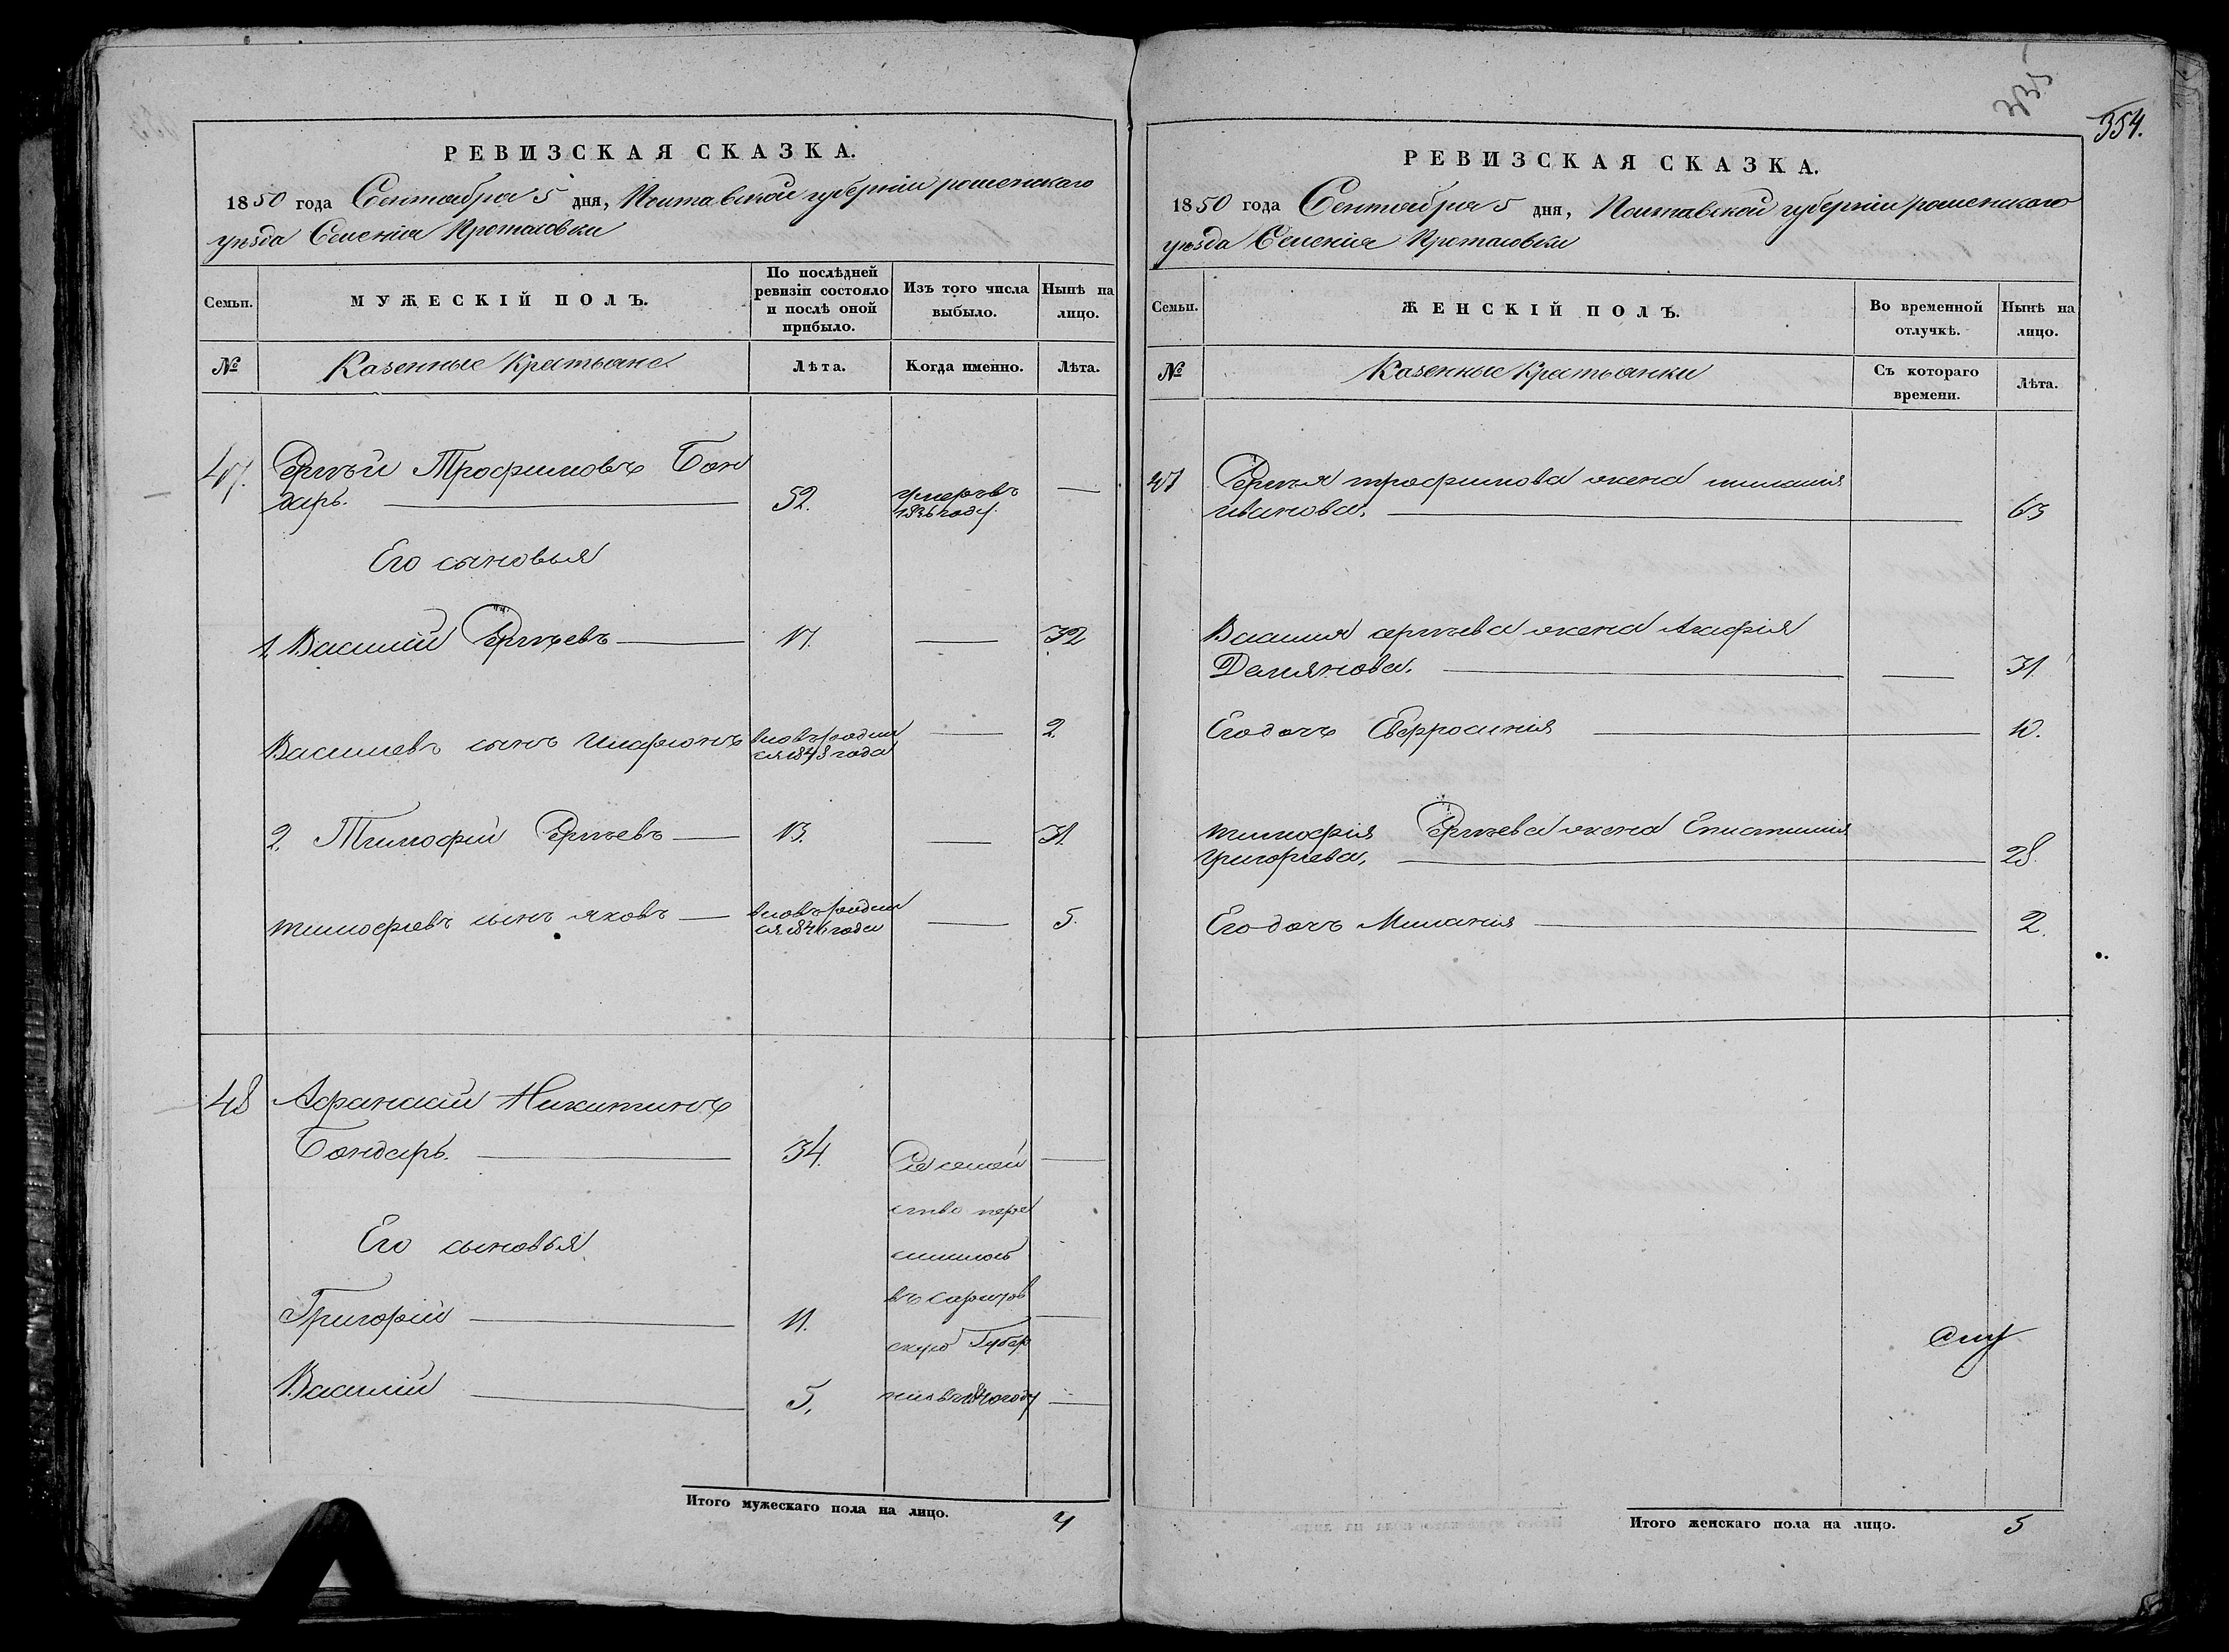 РЕВИЗСКАЯ СКАЗКА.
1850 года Сентября 5 дня, Полтавской губерніи роменскаго
уѣзда Селенія Протасовки
Семьи.
МУЖЕСКІЙ ПОЛЪ.
По послѣдней ревизіи состояло и послѣ оной прибыло.
Изъ того числа выбыло.
Нынѣ на лицо.
№
Казенные Крестьяне
Лѣта.
Когда именно.
Лѣта.
47. Сергѣй Трофимовъ Бон
дарь. 52. умеръ въ 1836 году —
Его сыновья
1. Василий Сергѣевъ 17. — 32
Василиевъ сынъ Иларіонъ вновь родил
ся 1848 года — 2.
2. Тимофій Сергѣевъ 13. — 31.
тимофіевъ сынъ яковъ вновь родил
ся 1846 года — 5.
48 Афанасий Никитинъ
Бондарь. 34. Съ семей
ство пере
Его сыновья
селилось
въ саратов
Григорій 11. —
скую Губер
Василий 5. нию въ 1840 году —
Итого мужескаго пола на лицо. 4
335
354.
РЕВИЗСКАЯ СКАЗКА.
1850 года Сентября 5 дня, Полтавской губерніи роменскаго
уѣзда Селенія Протасовки
Семьи.
ЖЕНСКІЙ ПОЛЪ.
Во временной отлучкѣ.
Нынѣ на лицо.
№
Казенные Крестьянки
Съ котораго времени.
Лѣта.
47 Сергѣя трофимова жена милания
иванова. 63
Василия сергѣева жена Агафія
Демянова. — 31.
Его дочъ Евфросинія 10.
тимофія Сергѣева жена Епистимия
григоріева. 28.
Его дочъ Милания 2.
Итого женскаго пола на лицо. 5